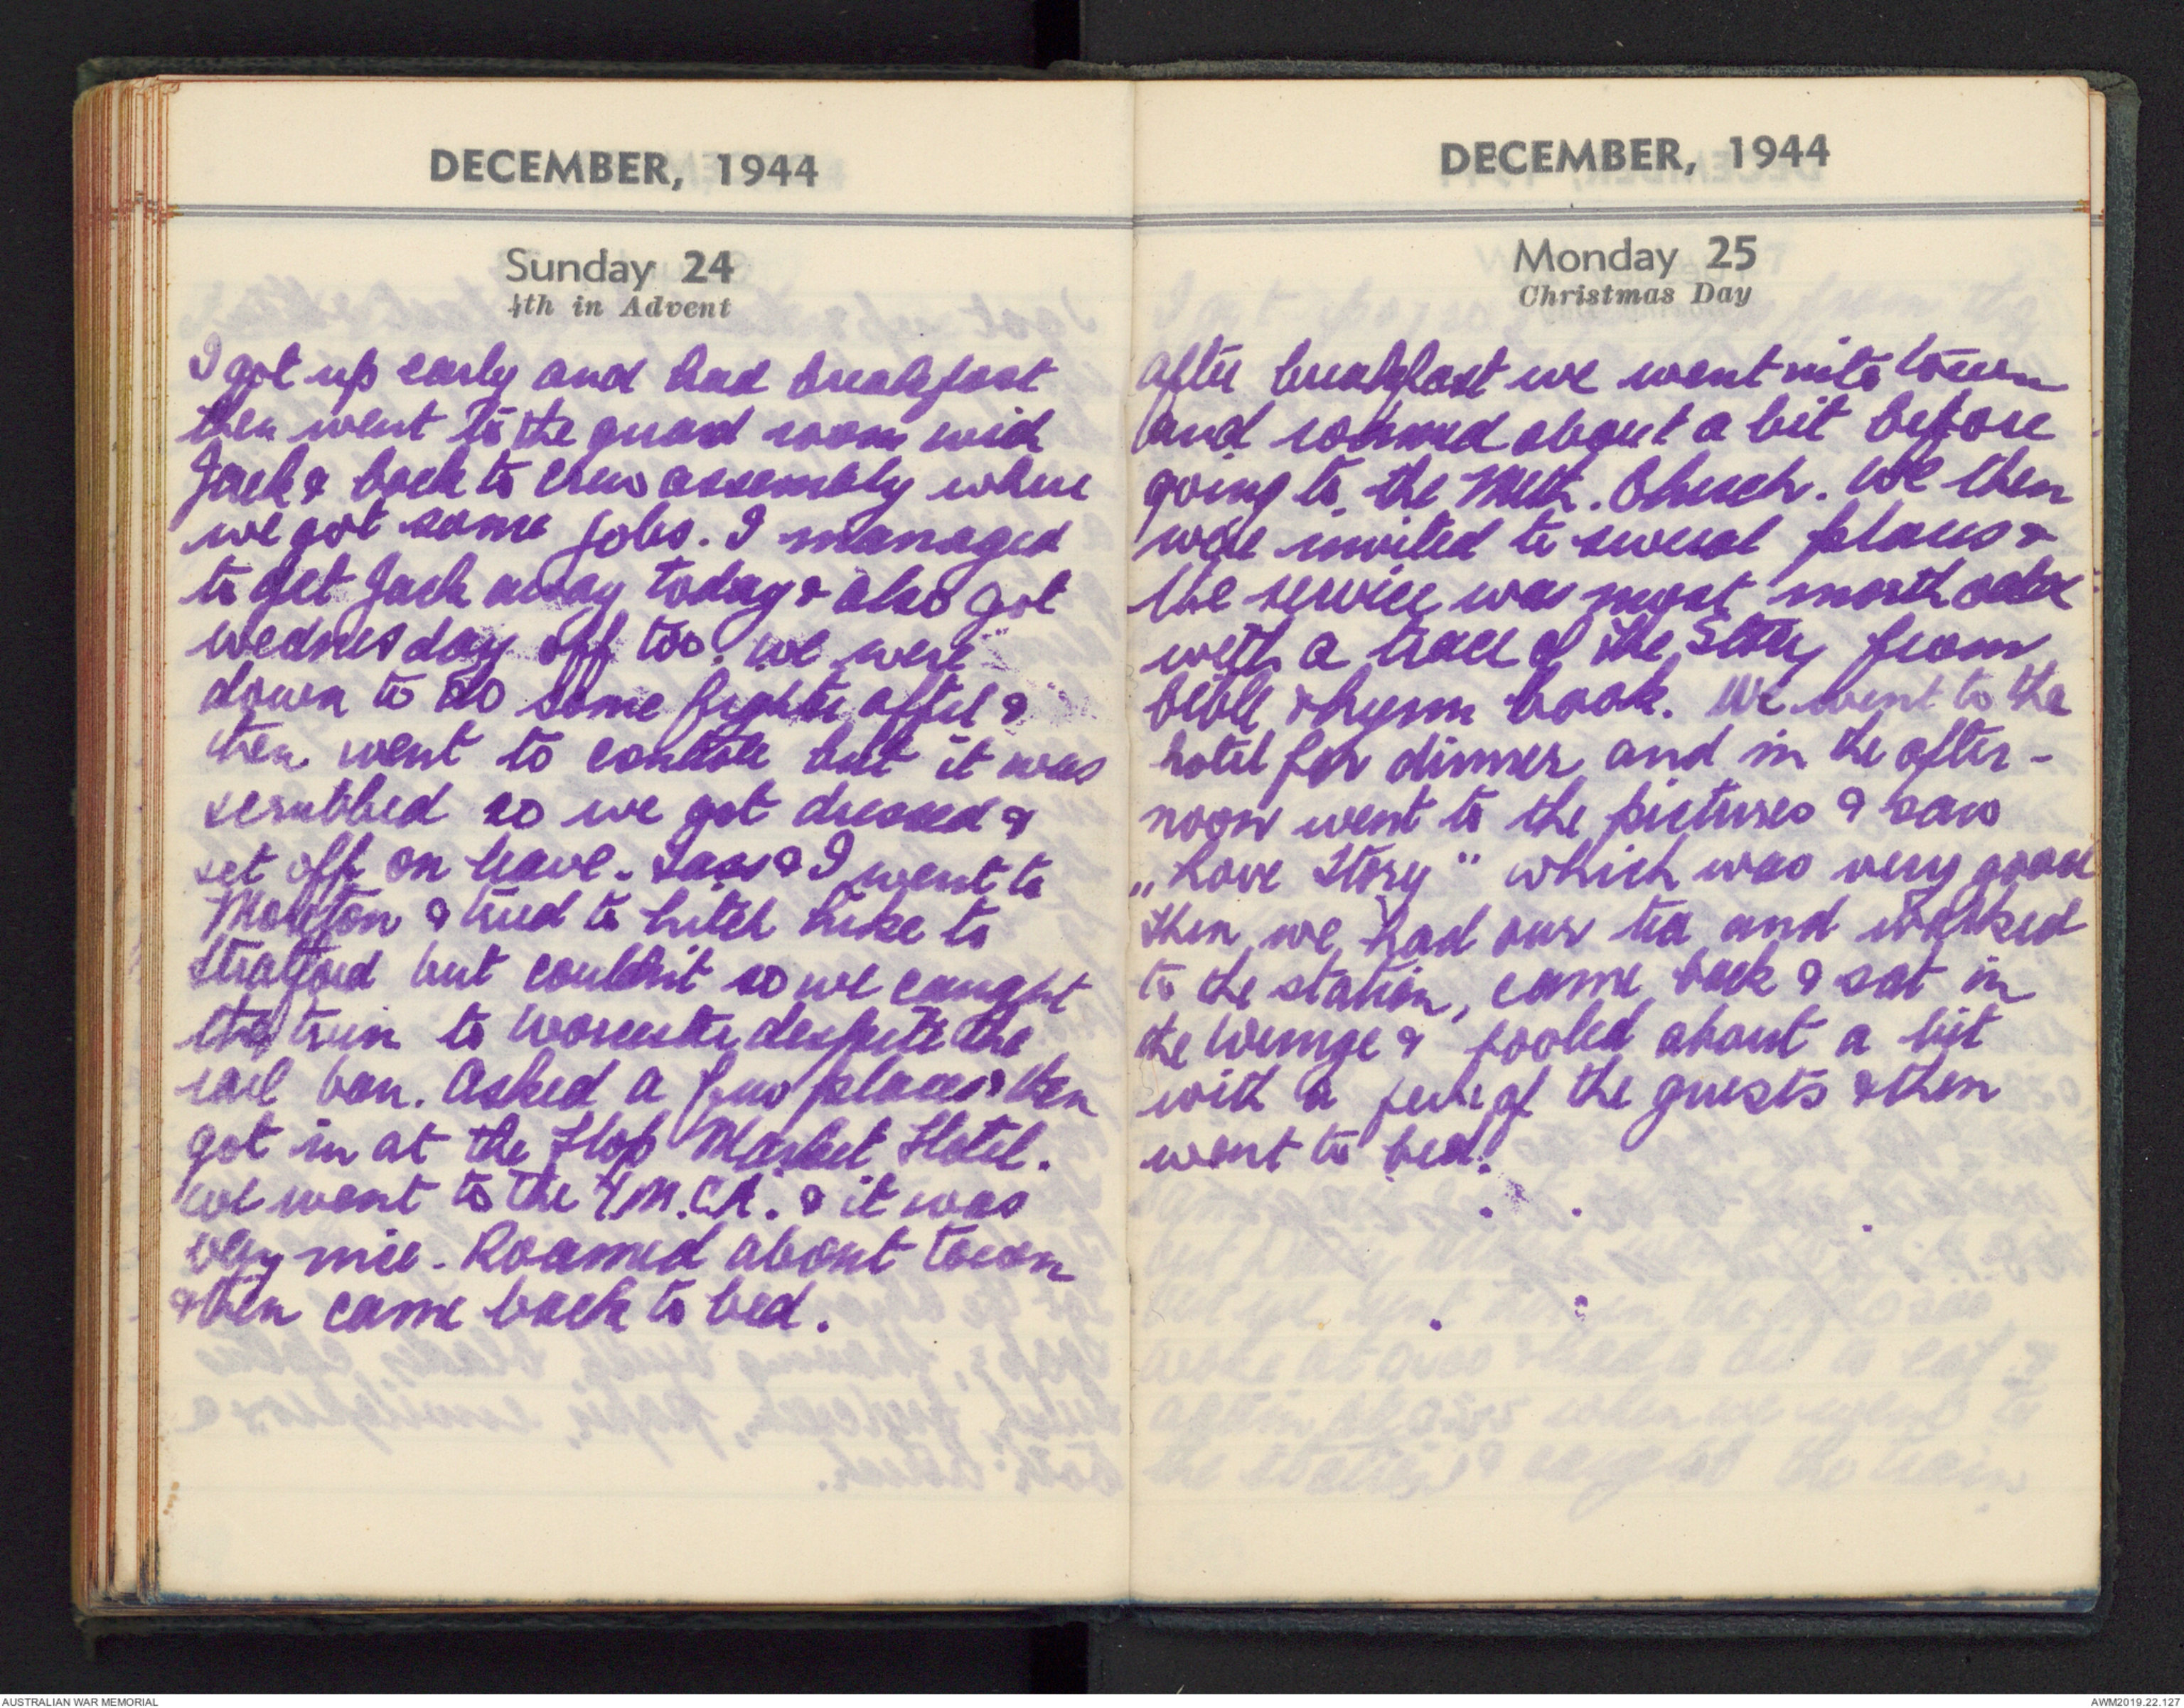 DECEMBER, 1944
Sunday 24
4th in Advent
I got up early and had breakfast
then went to the guard room with
Jack & back to crew assembly where
we got some jobs. I managed
to get Jack away today & also got
wednesday off too. we were
down to do some fights after &
then went to controle but it was
scrubbed so we got dressed &
set off on leave. & I went to
Moreton & tried to hitch hike to
Stratford but couldn't so we caught
the train to Worcester despite the
rail ban. Asked a few places & then
got in at the Hop Market Hotel.
We went to the Y.M.C.A. & it was
very nice. Roamed about town
& then came back to bed.
DECEMBER, 1944
Monday 25
Christmas Day
After breakfast we went into town
and roamed about a bit before
going to the Meth. Church. We then
were invited to several places &
the service was most
with a trace of the Story from
bible & hymn book. We went to the
hotel for dinner and in the after-
noon went to the pictures & saw
„Love Story" which was very good
then we had our tea and walked
to the station, came back & sat in
the lounge & fooled about a bit
with a few of the guests & then
went to bed.
AUSTRALIAN WAR MEMORIAL
AWM2019.22.127